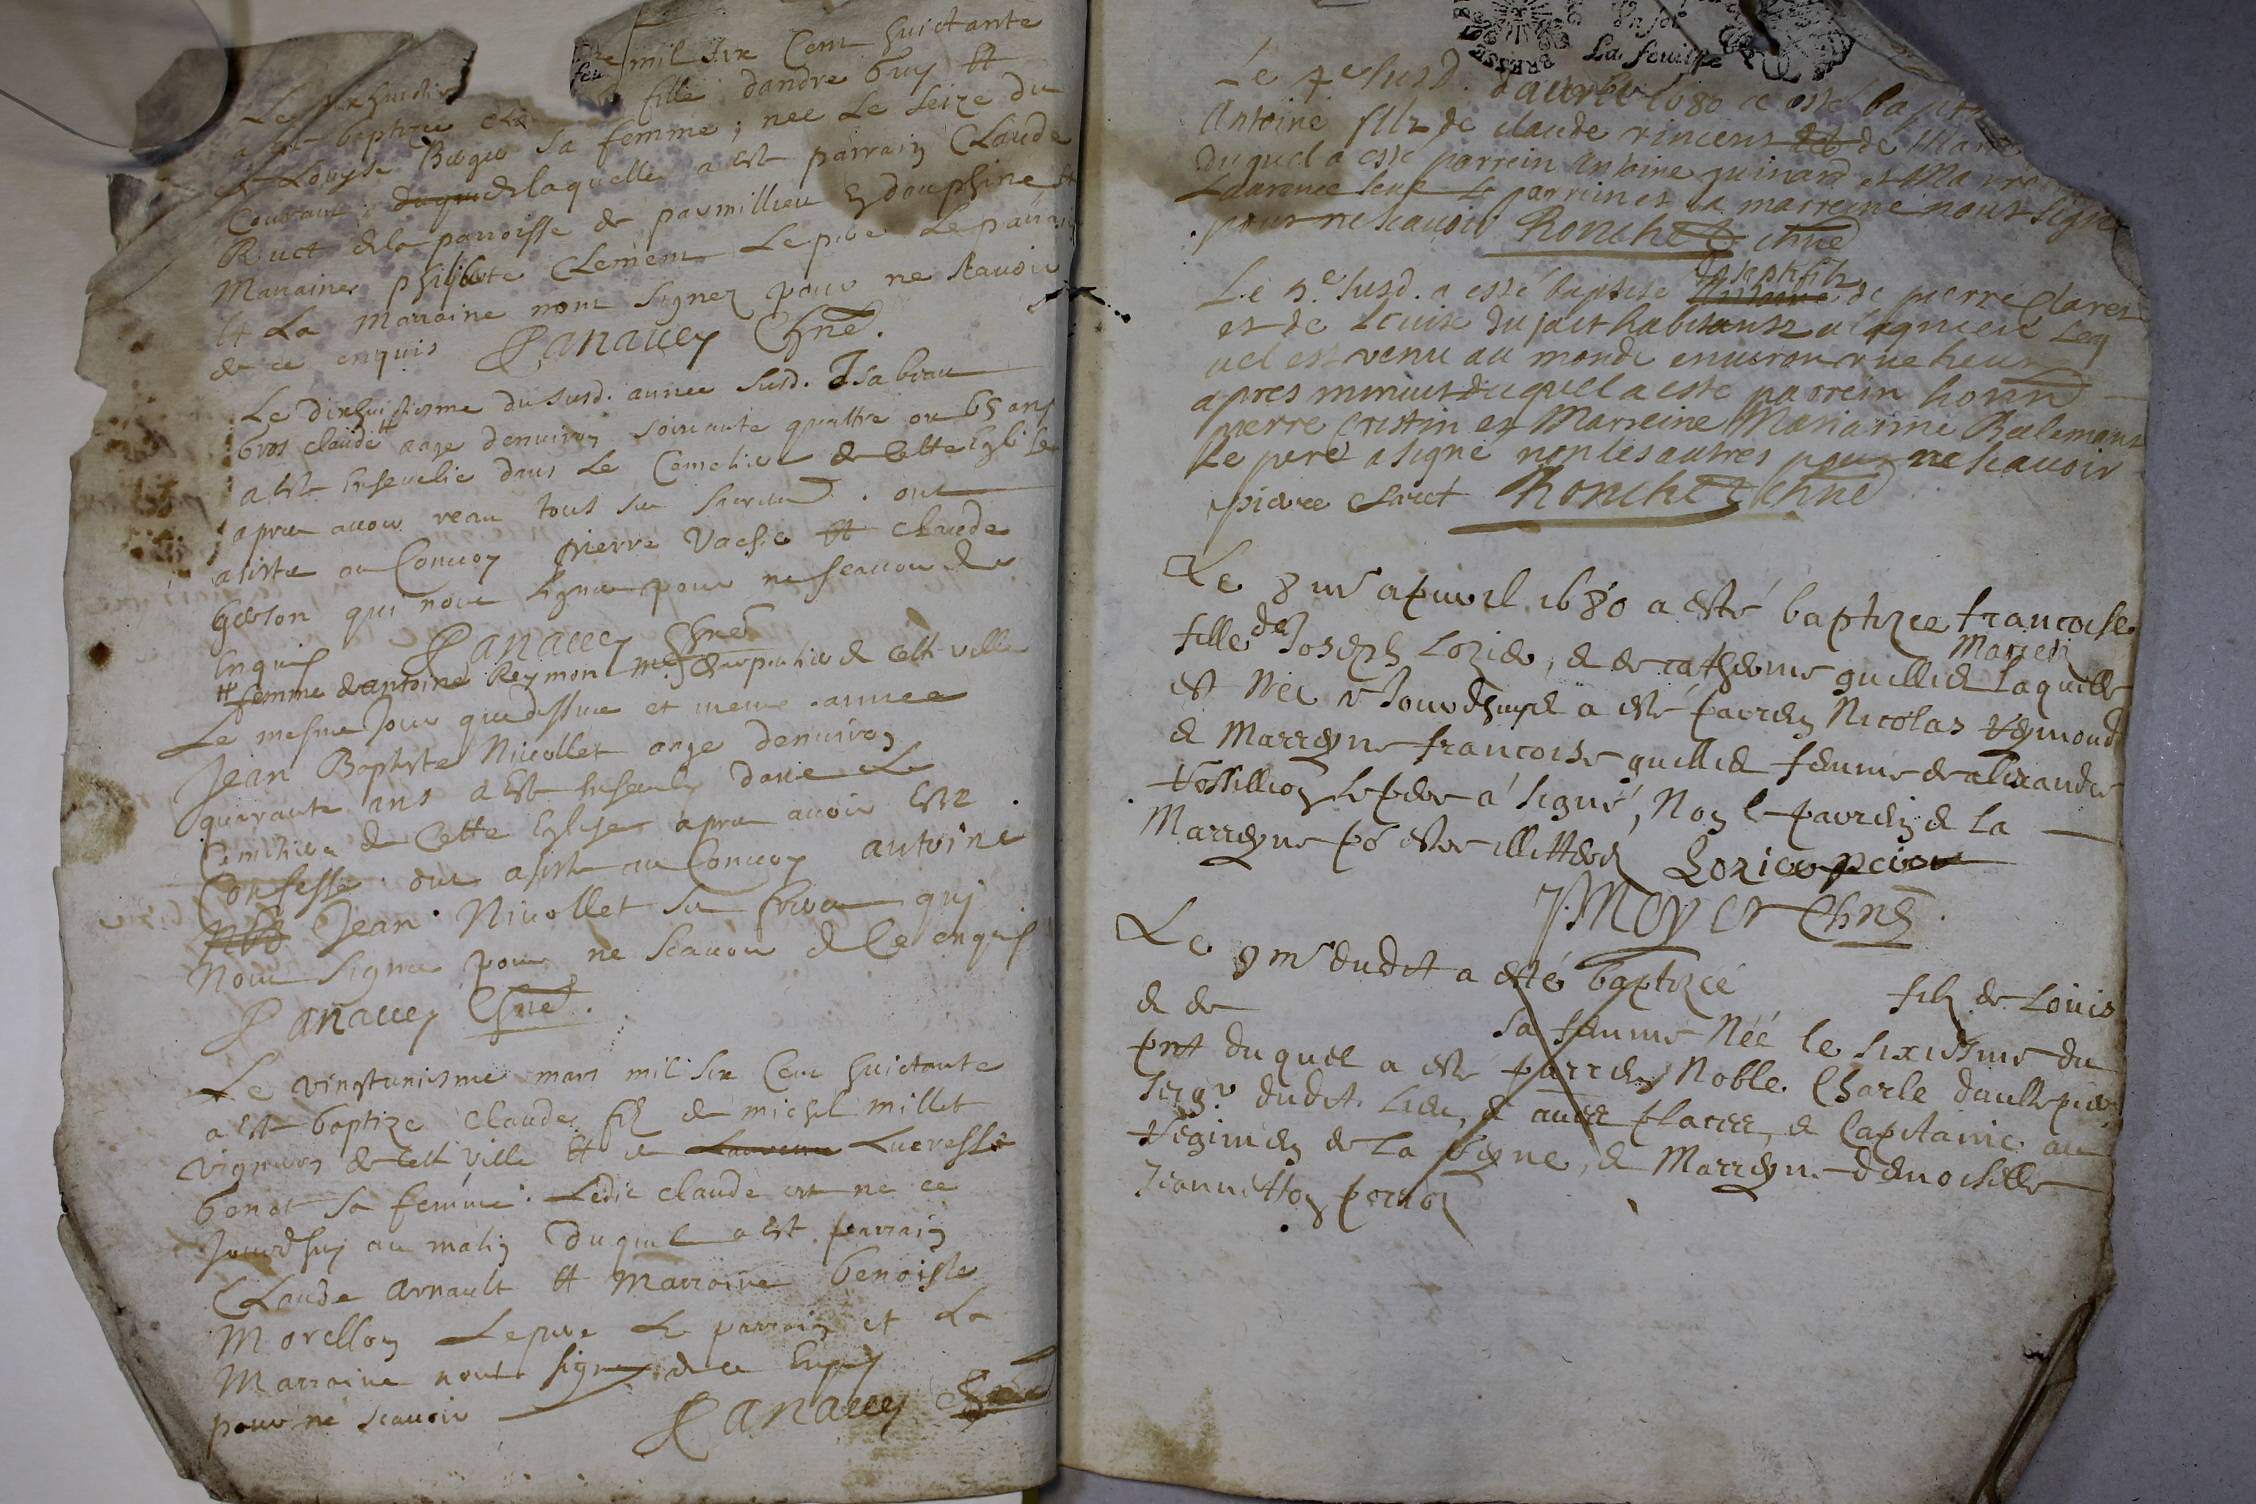 mil six Cent huictante
a est baptizee fille dandre Guy et
de Lovyse sa femme, nee Le seize du
Courant, de laquelle a est parrain Claude
Ruct de la parroisse de parmillieu En douphine et
Marraine philiberte Clement Le pere Le parrain
et La marraine nont signez pour ne scavoir
de ce enquis Panacey Chne.
Le dixhuictiesme du susd. annee susd. Isabeau
gros claude aage denuiron soixante quattre ou 65 ans
a est Enseuelie dans Le Cemetiere de Cette Eglise
apres auoir receu tous ses sacremt. ont
asiste au Conuoy pierre Vachie et claude
qui nont signe pour ne scauoir de
Enquis Panacey Chne
femme dantoine Reymon Me. Charpentier de cette ville
Le mesme Jour que dessus et meme annee
Jean Baptiste Nicollet aage denuiron
quarante ans a est Enseuely dans Le
Cemetiere de Cette Eglise apres auoir este
Confesse. ont asiste au Conuoy antoine
Jean Nicollet ses freres qui
nont signe pour ne scauoir de Ce enquis
Panacey Chne.
Le vingtuniesme mars mil six Cent huictante
a est baptize Claude fils de michel millet
vigneron de cette ville et de Lucresse
benot sa femme. Ledit claude est ne ce
Jourdhuy au matin Duquel a est parrain
Claude Arnault et Marraine benoiste
Morellon Le pere Le parrain et La
Marraine nont signe de ce Enquis
pour ne scauoir Panacey Chne
La feuille
Le 4e susd. 1680 a esté baptisé
Antoine fils de claude vincent de Marie
duquel a esté parrein Antoine guinard et Marreine
Laurence le parrin et la marreine nont signé
pour ne scauoir Ronchet chne
Le 5.e susd. a esté baptise Joseph fils de pierre Claret
et de Louise dujait habitants a lagnieu Leq
uel est venu au monde enuiron vne heure
apres minuit duquel a este parrein honn
pierre Cristin et Marreine Marianne
Le pere a signé non les autres pour ne scauoir
pierre Claret Ronchet chne
Le 8me apuril 1680 a esté baptizee francoise
fille de Joseph Lozier, & de catherine guillet Mariez Laquelle
est Neé ce Jourdhuy & a esté parrein Nicolas Reymond
& Marreyne francoise guillet femme de alexandre
Rossillion Le pere a signé, Non le parrein & la
Marreyne po estre illitteréz Lozier
J. Moyer Chne.
Le 9me dudit a esté baptizé fils de Louis
& de sa femme Néé le sixiesme du
pnt duquel a esté parrein Noble Charle
seigr dudit Lieu, & autres places, & Capitaine au
Regiment de La Reyne, & Marreyne demoiselle
Jeannetton